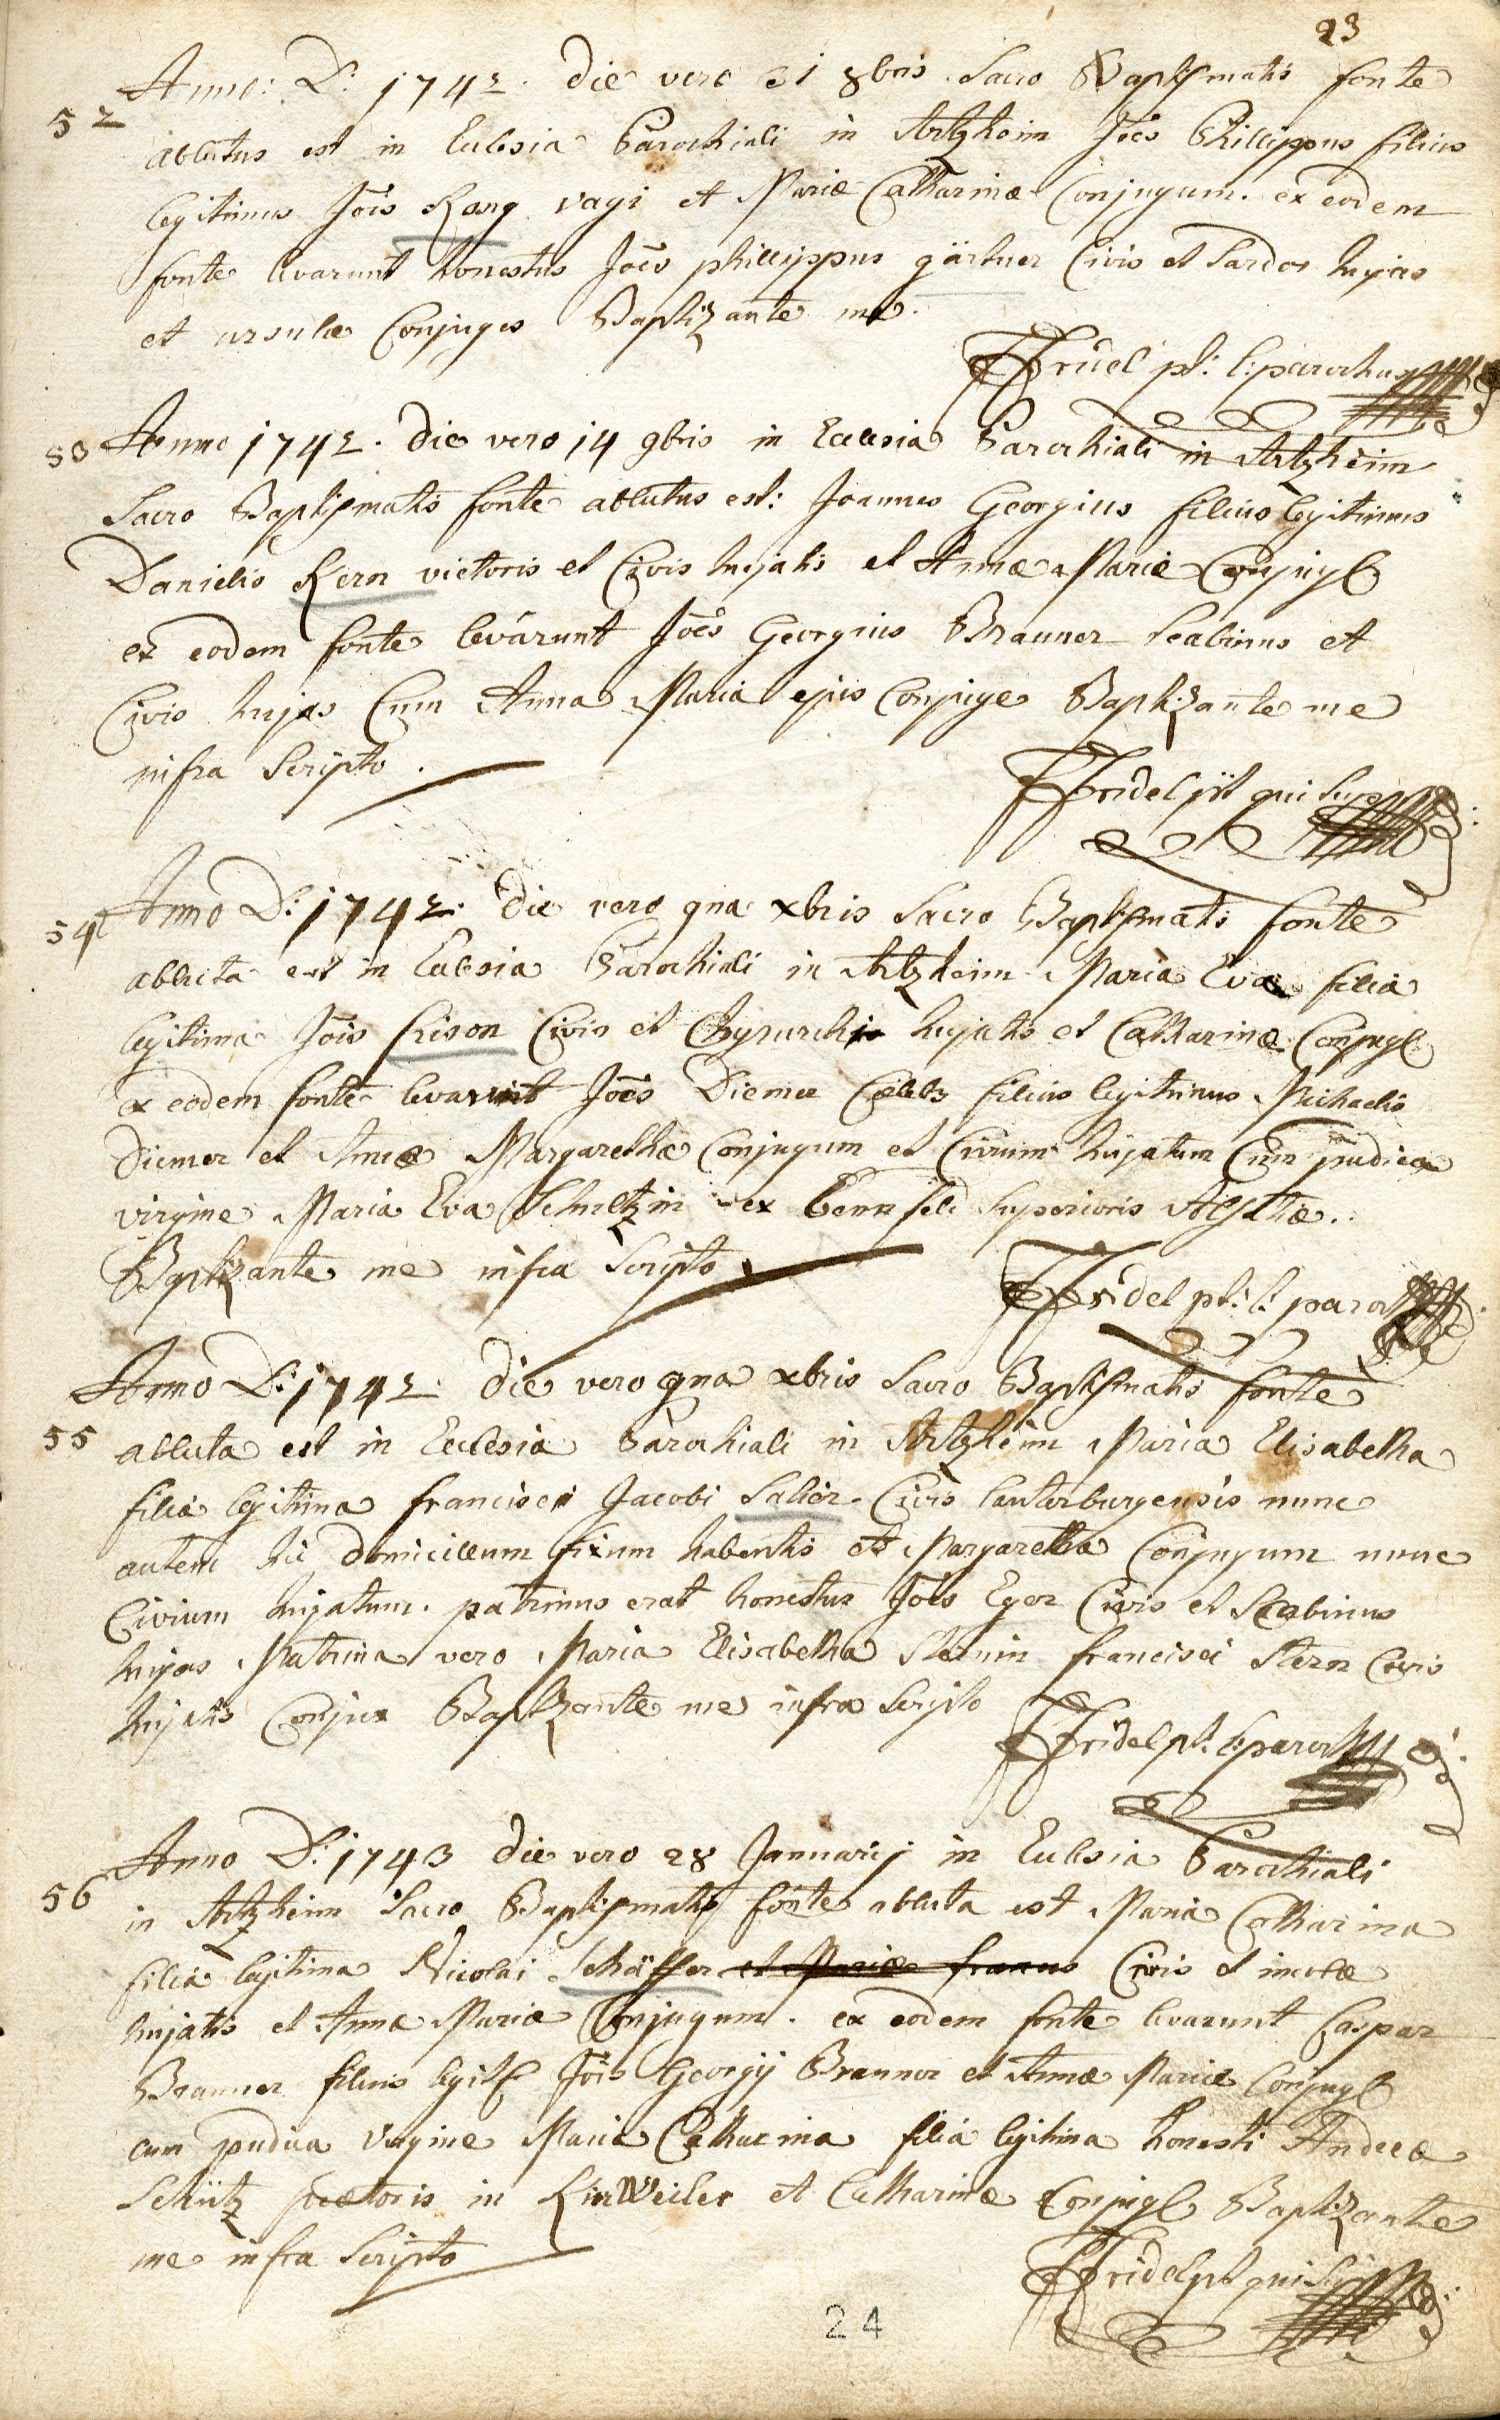 23
52 Anno: D: 1742. die vero 31 8bris Sacro Baptismatis fonte
ablutus est in Eclesia Parochiali in Artzheim Joes Phillippus filius
legitimus Jois Rang vagi et Mariæ Catharinæ Conjugum. ex eodem
fonte levarunt honestus Joes phillippus gärtner Civis et Sardor hujas
et ursulæ Conjuges Baptizante me.
Fridel pt: l: parochus
53 Anno 1742. die vero 14 9bris in Ecclesia Parochiali in Artzheim
Sacro Baptismatis fonte ablutus est: Joannes Georgius filius legitimus
Danielis Kern victoris et Civis hujatis et Annæ Mariæ Conjug
ex eodem fonte levarunt Joes Georgius Brauner Scabinus et
Civis hujas Cum Anna Maria ejus Conjuge Baptizante me
infra Scripto.
Fridel pt qui Supra
54 Anno D: 1742. die vero 9na xbris Sacro Baptismatis fonte
abluta est in Eclesia Parochiali in Artzheim Maria Eva filia
legitima Jois Crison Civis et Chyrurchi hujatis et Catharinæ Conjug
ex eodem fonte levarunt Joes Diemer Cælebs filius legitimus Michaelis
Diemer et Annæ Margarethæ Conjugum et Civium hujatum Cum pudica
virgine Maria Eva Schultzin ex Bennfeld Superioris Alsatiæ.
Baptizante me infra Scripto
Fridel pt: l: paroch
Anno D: 1742. die vero 9na xbris Sacro Baptismatis fonte
55 abluta est in Ecclesia Parochiali in Artzheim Maria Elisabetha
filia legitima francisci Jacobi Salier Civis lauterburgensis nunc
autem hic domicilium fixum habentis et Margaretha Conjugum nunc
Civium hujatum. patrinus erat honestus Joes Eger Civis et Scabinus
hujas Matrina vero Maria Elisabetha Sternin francisci Stern Civis
hujatis Conjux Baptizante me infra Scripto
Fridel pt. l: paroch
Anno D: 1743 die vero 28 Januarij in Eclesia Parochiali
56 in Artzheim Sacro Baptismatis fonte abluta est Maria Catharina
filia legitima Nicolai Schäffer et Mariæ Civis et incolæ
hujatis et Annæ Mariæ Conjugum. ex eodem fonte levarunt Caspar
Brauner filius legit Jois Georgij Brauner et Annæ Mariæ Conjug
cum pudica virgine Maria Catharina filia legitima honesti Andreæ
Schütz prætoris in KinWeiler et Catharinæ Conjug Baptizante
me infra Scripto
Fridel pt qui Supra
24